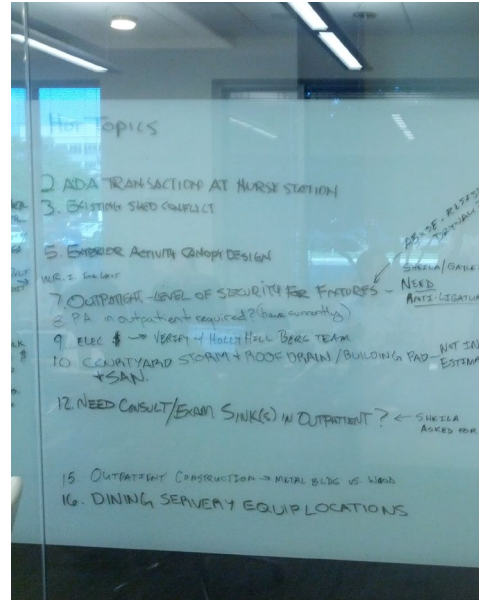 Hot Topics
2. ADA TRANSACTION AT NURSE STATION
3. EXISTING SHED CONFLICT
5. EXTERIOR ACTIVITY CANOPY DESIGN
7. OUTPATIENT - LEVEL OF SECURITY FOR FIXTURES -
SHEILA/
NEED
ANTI-LIGATUR
8 PA in outpatient required? (have currently)
9 ELEC $ → VERIFY w HOLLY HILL BERG TEAM
10. COURTYARD STORM + ROOF DRAIN / BUILDING PAD - NOT IN
+ SAN. ESTIMA
12. NEED CONSULT/EXAM SINK(S) IN OUTPATIENT? ← SHEILA
ASKED FOR
15. OUTPATIENT CONSTRUCTION → METAL BLDG VS. WOOD
16. DINING SERVERY EQUIP LOCATIONS